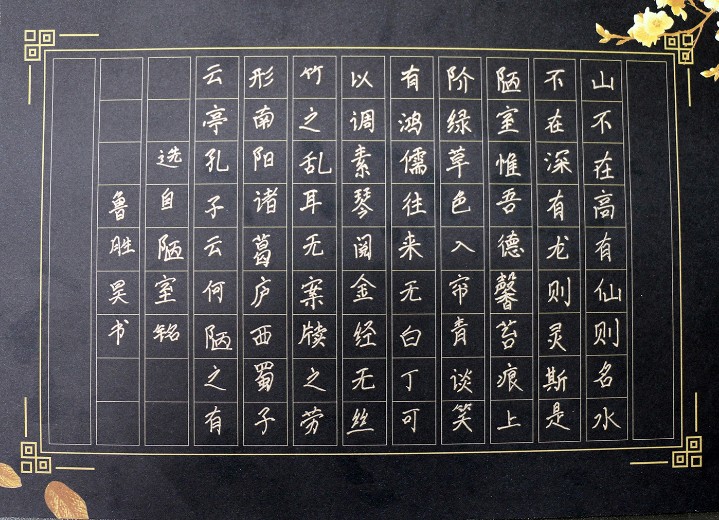 山不在高有仙则名水
不在深有龙则灵斯是
陋室惟吾德馨苔痕上
阶绿草色入帘青谈笑
有鸿儒往来无白丁可
以调素琴阅金经无丝
竹之乱耳无案牍之劳
形南阳诸葛庐西蜀子
云亭孔子云何陋之有
选自陋室铭
鲁胜昊书